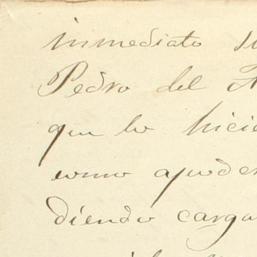 inmediato su
Pedro del A
que lo hicie
como apoder
diendo carga